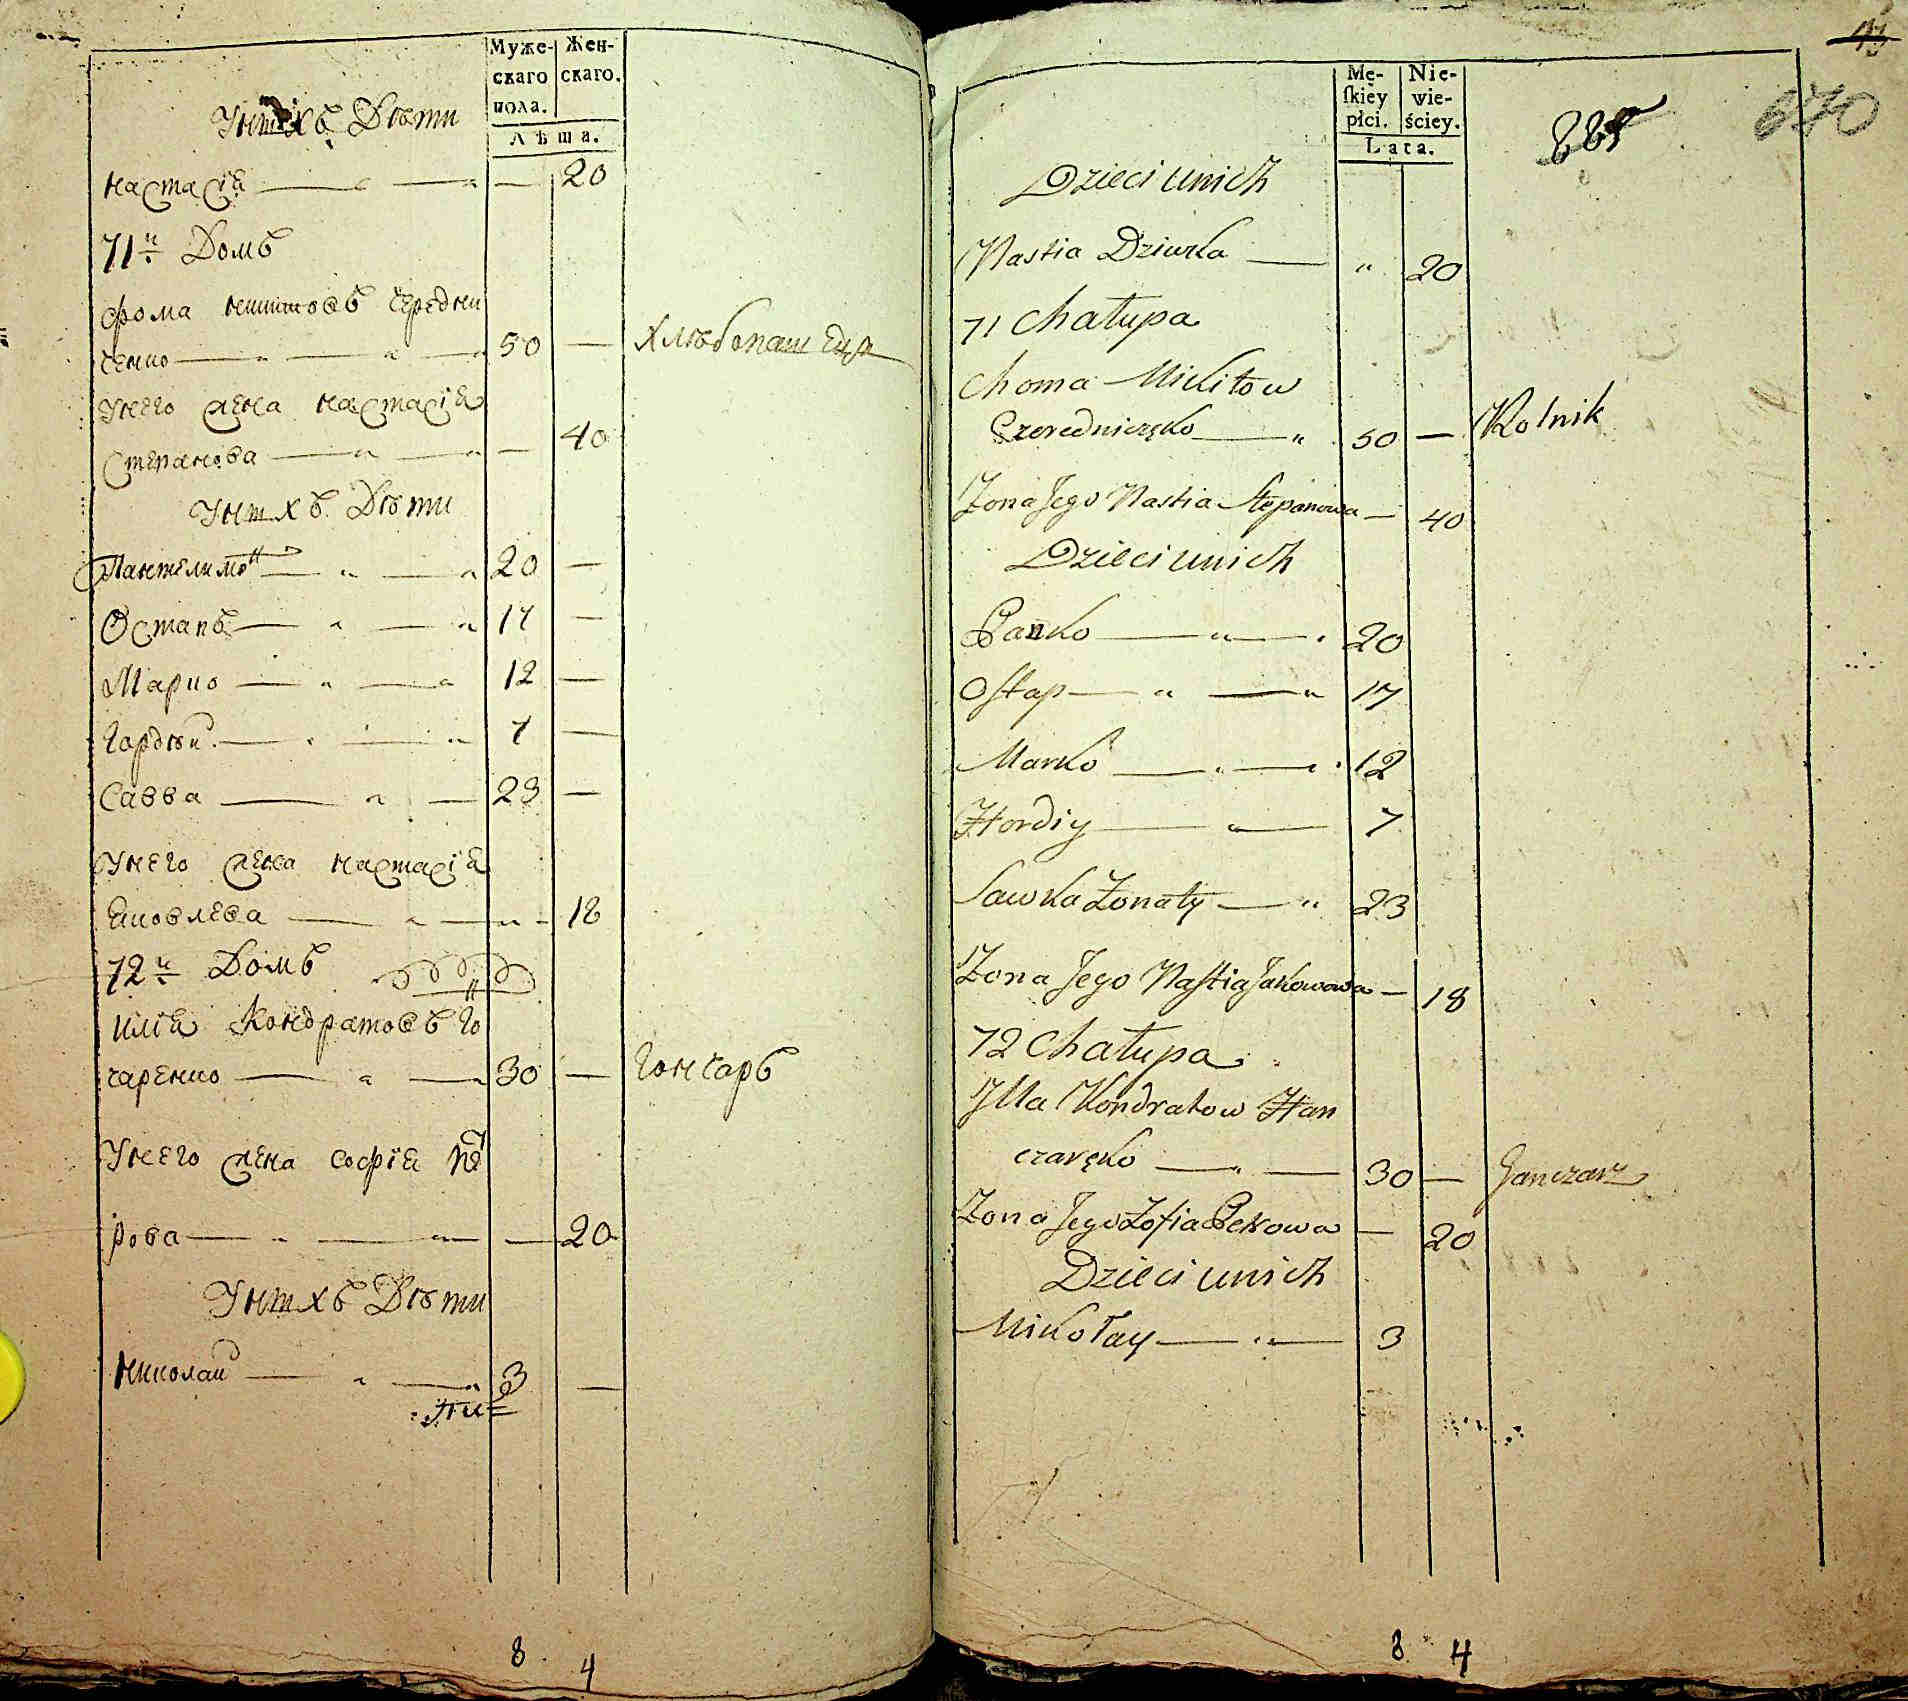 Муже-
скаго
пола.
Жен-
скаго.
Лѣта.
Унихъ Дѣти
Настасіа 20
71й Домъ
Фома Никитовъ Чередни
ченко 50 Хлѣбопашецъ
Унего жена Настасіа
Степанова 40
Унихъ Дѣти
Пантелимон 20
Остапъ 17
Марко 12
Гордѣй 7
Савва 23
Унего жена Настасіа
Яковлева 18
72й Домъ
Иліа Кондратовъ Го
нчаренко 30 Гончаръ
Унего жена Софіа Пет
рова 20
Унихъ Дѣти
Николай 3
8 4
Mę-
skiey
płci.
Nie-
wie-
ściey.
Lata.
670
Dzieci unich
Nastia Dziurka 20
71 Chałupa
Choma Mikitow
Czeredniczęko 50 Rolnik
Zona Jego Nastia Stepanowa 40
Dzieci unich
Pańko 20
Ostap 17
Marko 12
Hordiy 7
Sawka Żonaty 23
Zona Jego Nastia Jakowowa 18
72 Chałupa
Jlla Kondratow Han
czaręko 30 Ganczarz
Zona Jego Zofia Petrowa 20
Dzieci unich
Mikołay 3
8 4